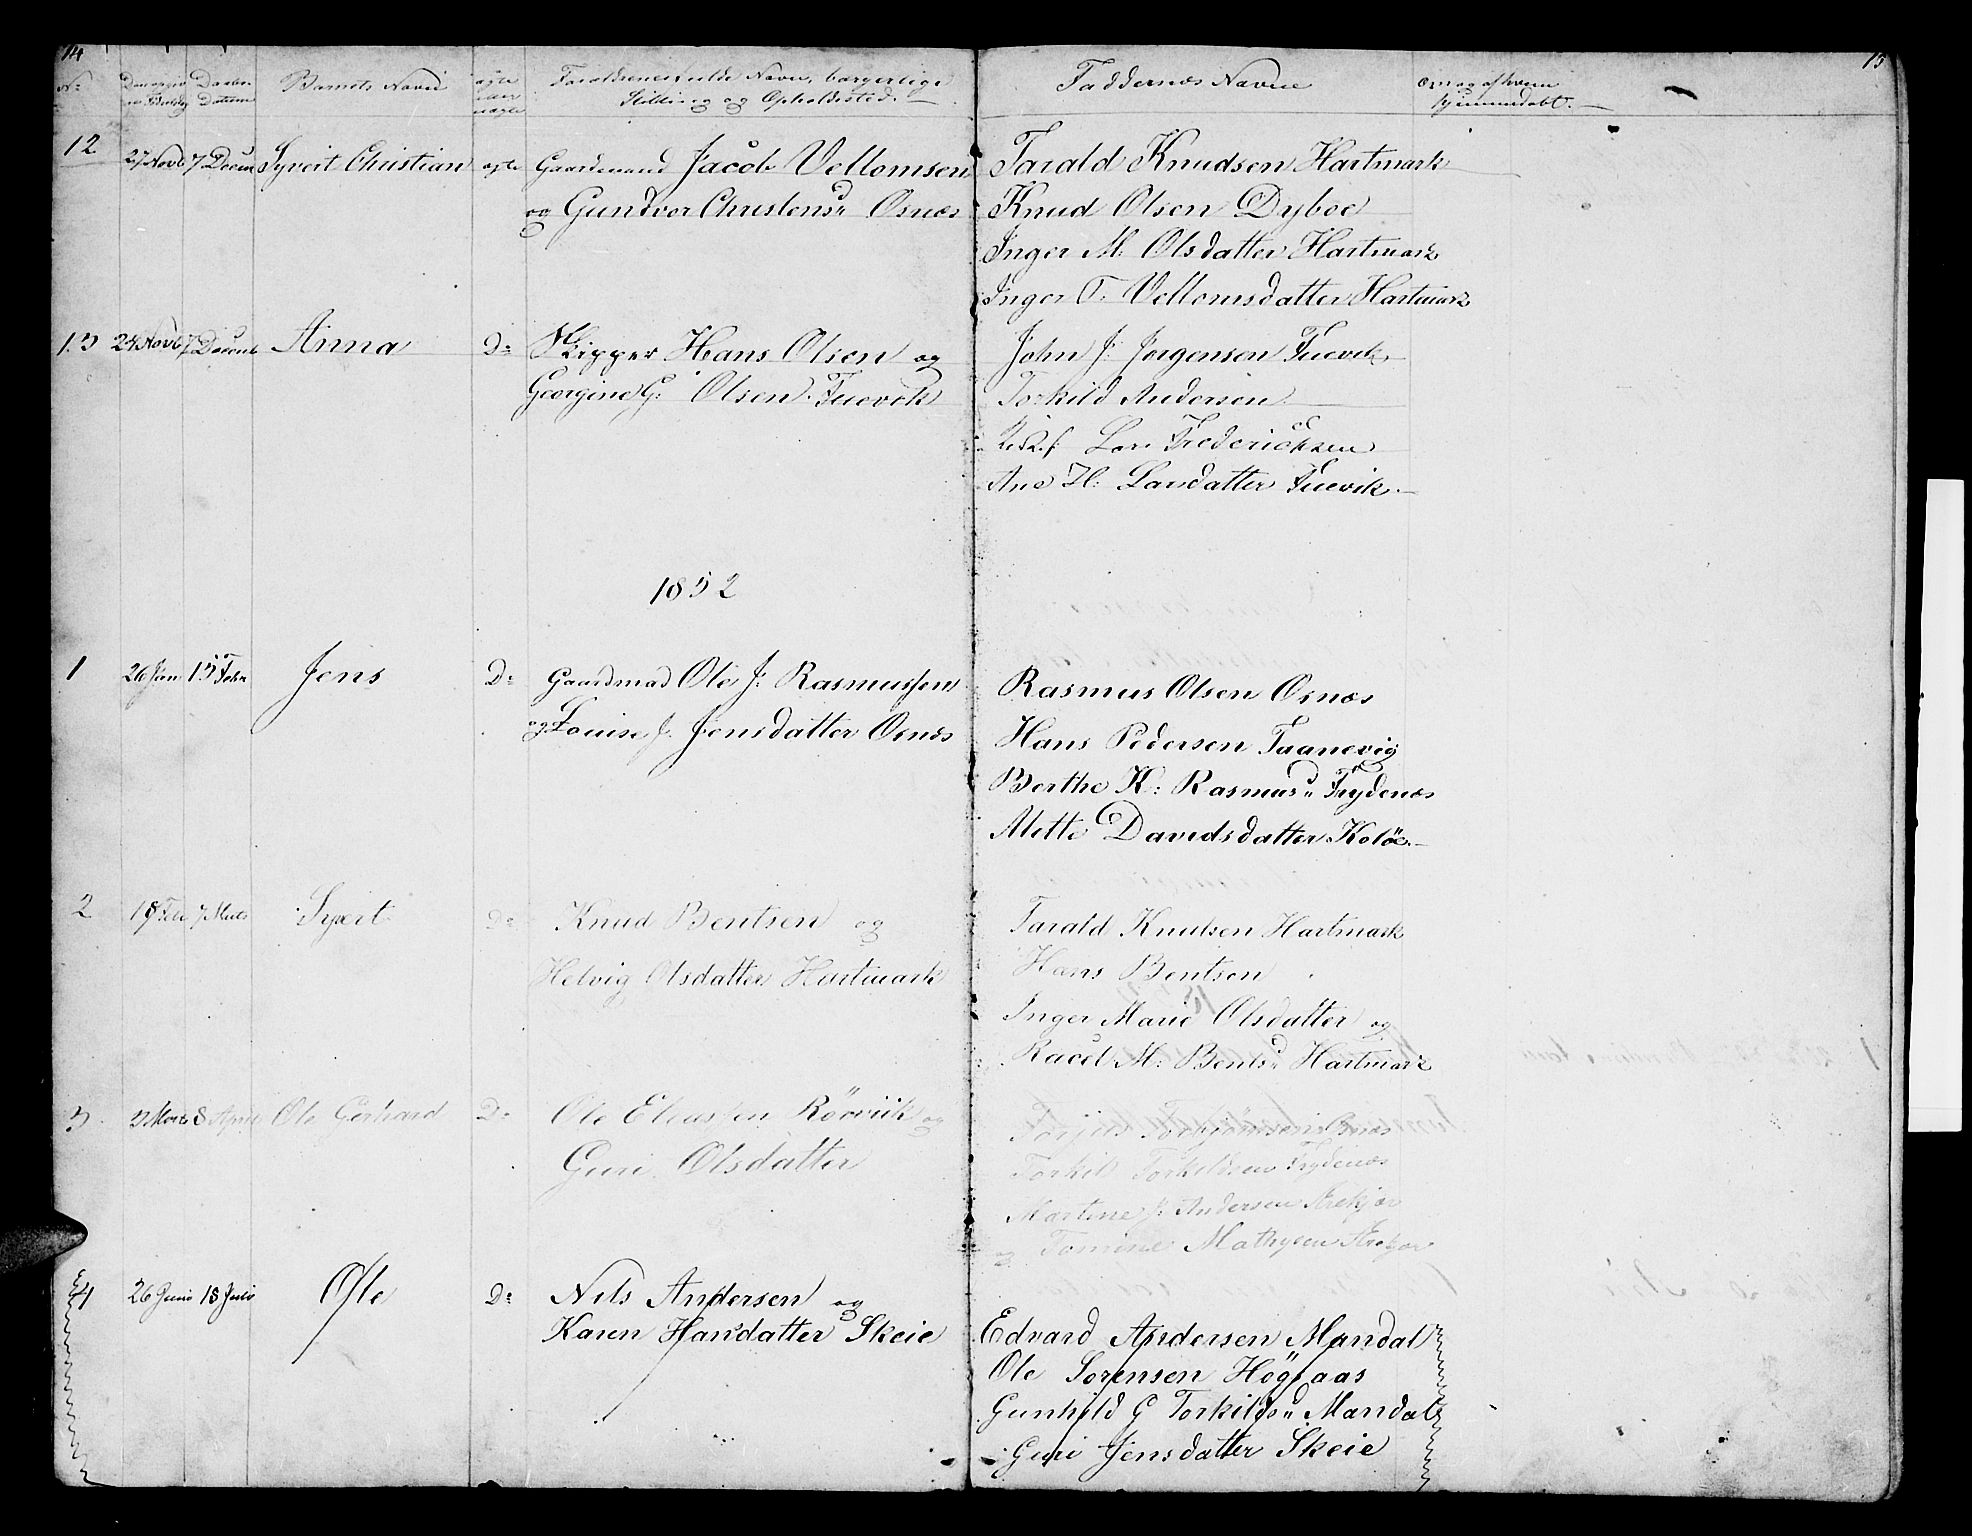 14
15
No
Barnets Navn
ægte eller uægte
Forældrenes fulde Navn, borgerlige
Stilling og Opholdssted.
Faddernes Navne
om og af hvem
hjemmedøbt.
12 27 Novb 7 Decem Syvert Christian ægte Gaardmand Jacob Vellomsen
og Gundvor Christensd Osnæs
Tarald Knudsen Hartmark
Knud Olsen Dyboe
Inger M. Olsdatter Hartmark
Inger T. Vellomsdatter Hartmark
13 24 Novb 7 Decemb Anna Do Skipper Hans Olsen og
Georgine G. Olsen Fuevik
John J. Jorgensen Fuevik
Torkild Andersen
Lars Frederichsen
Ane H. Larsdatter Fuevik
1852
1 26 Jan 15 Febr Jens Do Gaardmad Ole J. Rasmussen
og Louise J. Jensdatter Osnæs
Rasmus Olsen Osnæs
Hans Pedersen Taanevig
Berthe K. Rasmusd Frydenæs
Mette Davidsdatter Koløe
2 18 Feb 7 Marts Syvert Do Knud Bentsen og
Helvig Olsdatter Hartmark
Tarald Knutsen Hartmark
Hans Bentsen
Inger Marie Olsdatter og
Racel M. Bentsd Hartmark
3 3 Marts 8 April Ole Gerhard Do Ole Eliassen Rörviik og
Guri Olsdatter
Torjus Torbjörnsen Osnæs
Torkil Torkildsen Frydenæs
Martine J. Andersen
og Tomine Mathysen
4 26 Juni 18 Juli Ole Do Nils Andersen og
Karen Hansdatter Skeie
Edvard Andersen Mandal
Ole Sorensen Högsaas
Gunhild G Torkildsd Mandal
Guri Jensdatter Skeie